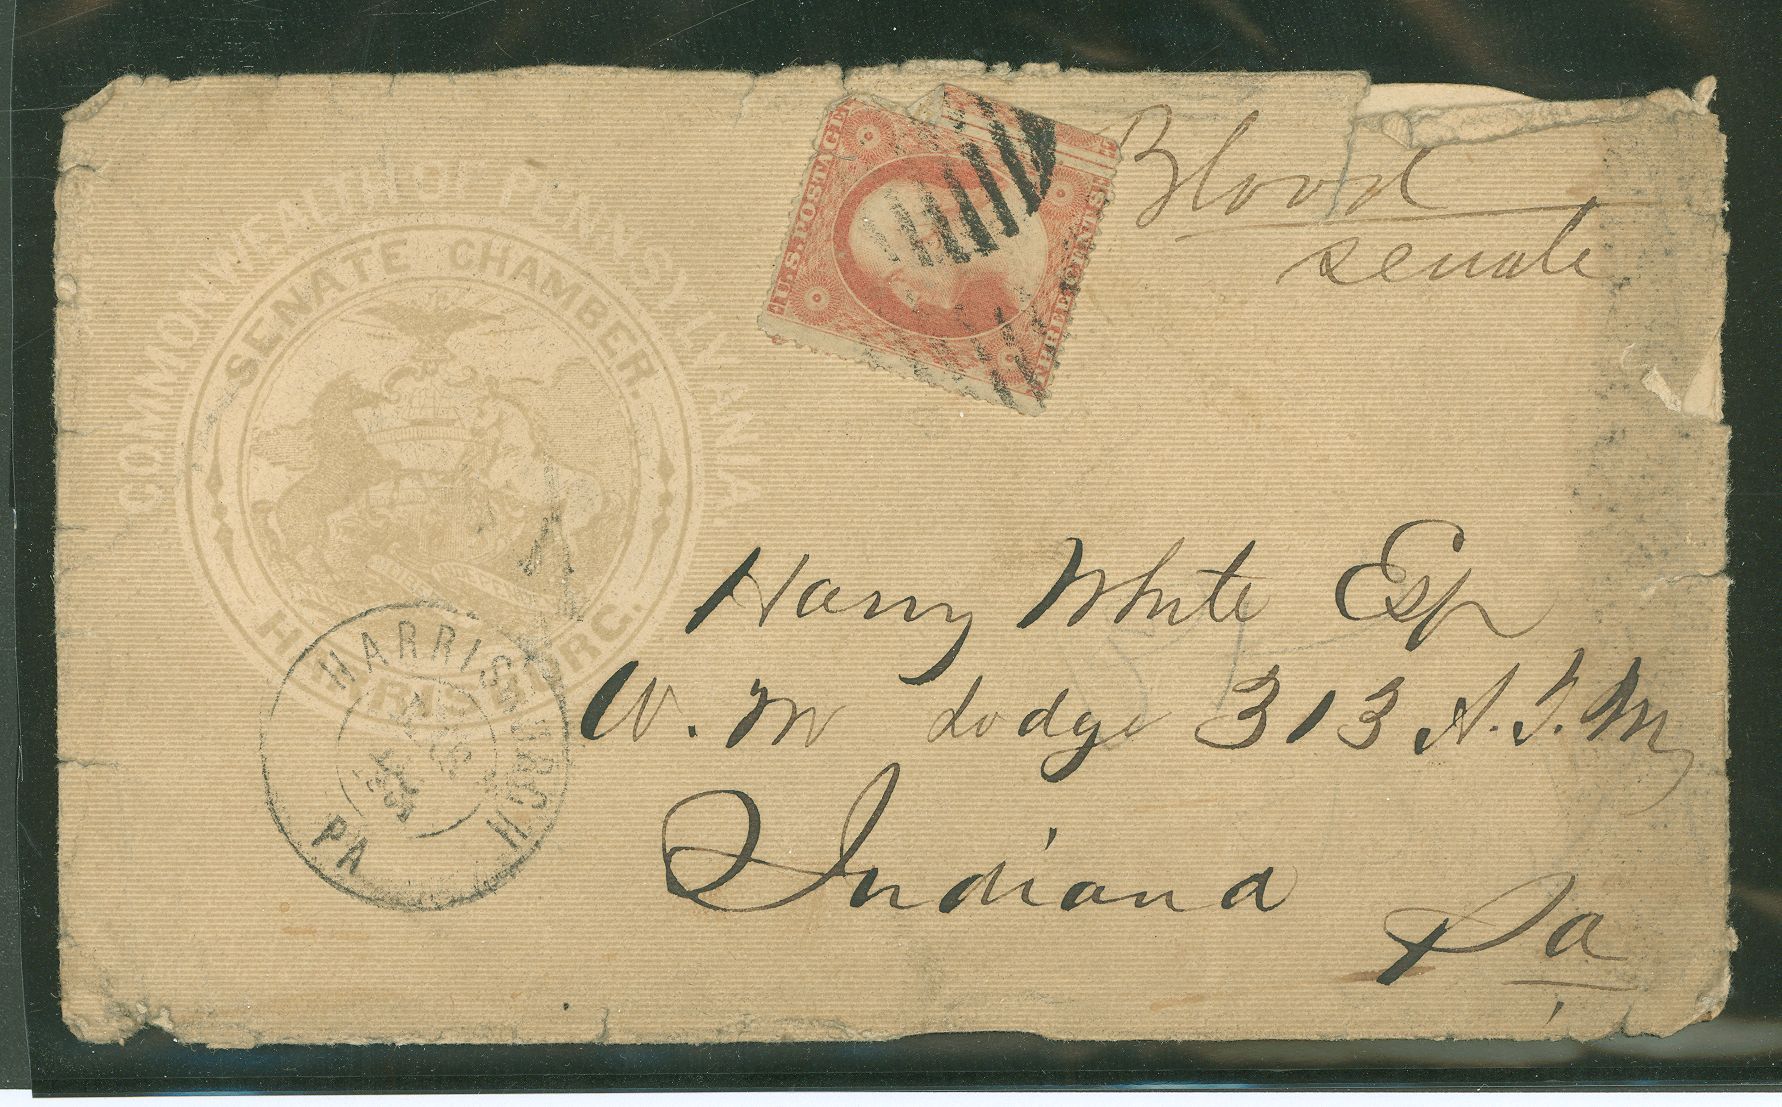 COMMONWEALTH OF PENNSYLVANIA
SENATE CHAMBER.
HARRISBURG.
U.S. POSTAGE
THREE CENTS
Blood
Senate
Harry White Esq
W. M Lodge 313 A.Y.M
Indiana
Pa
HARRISBURGH
PA